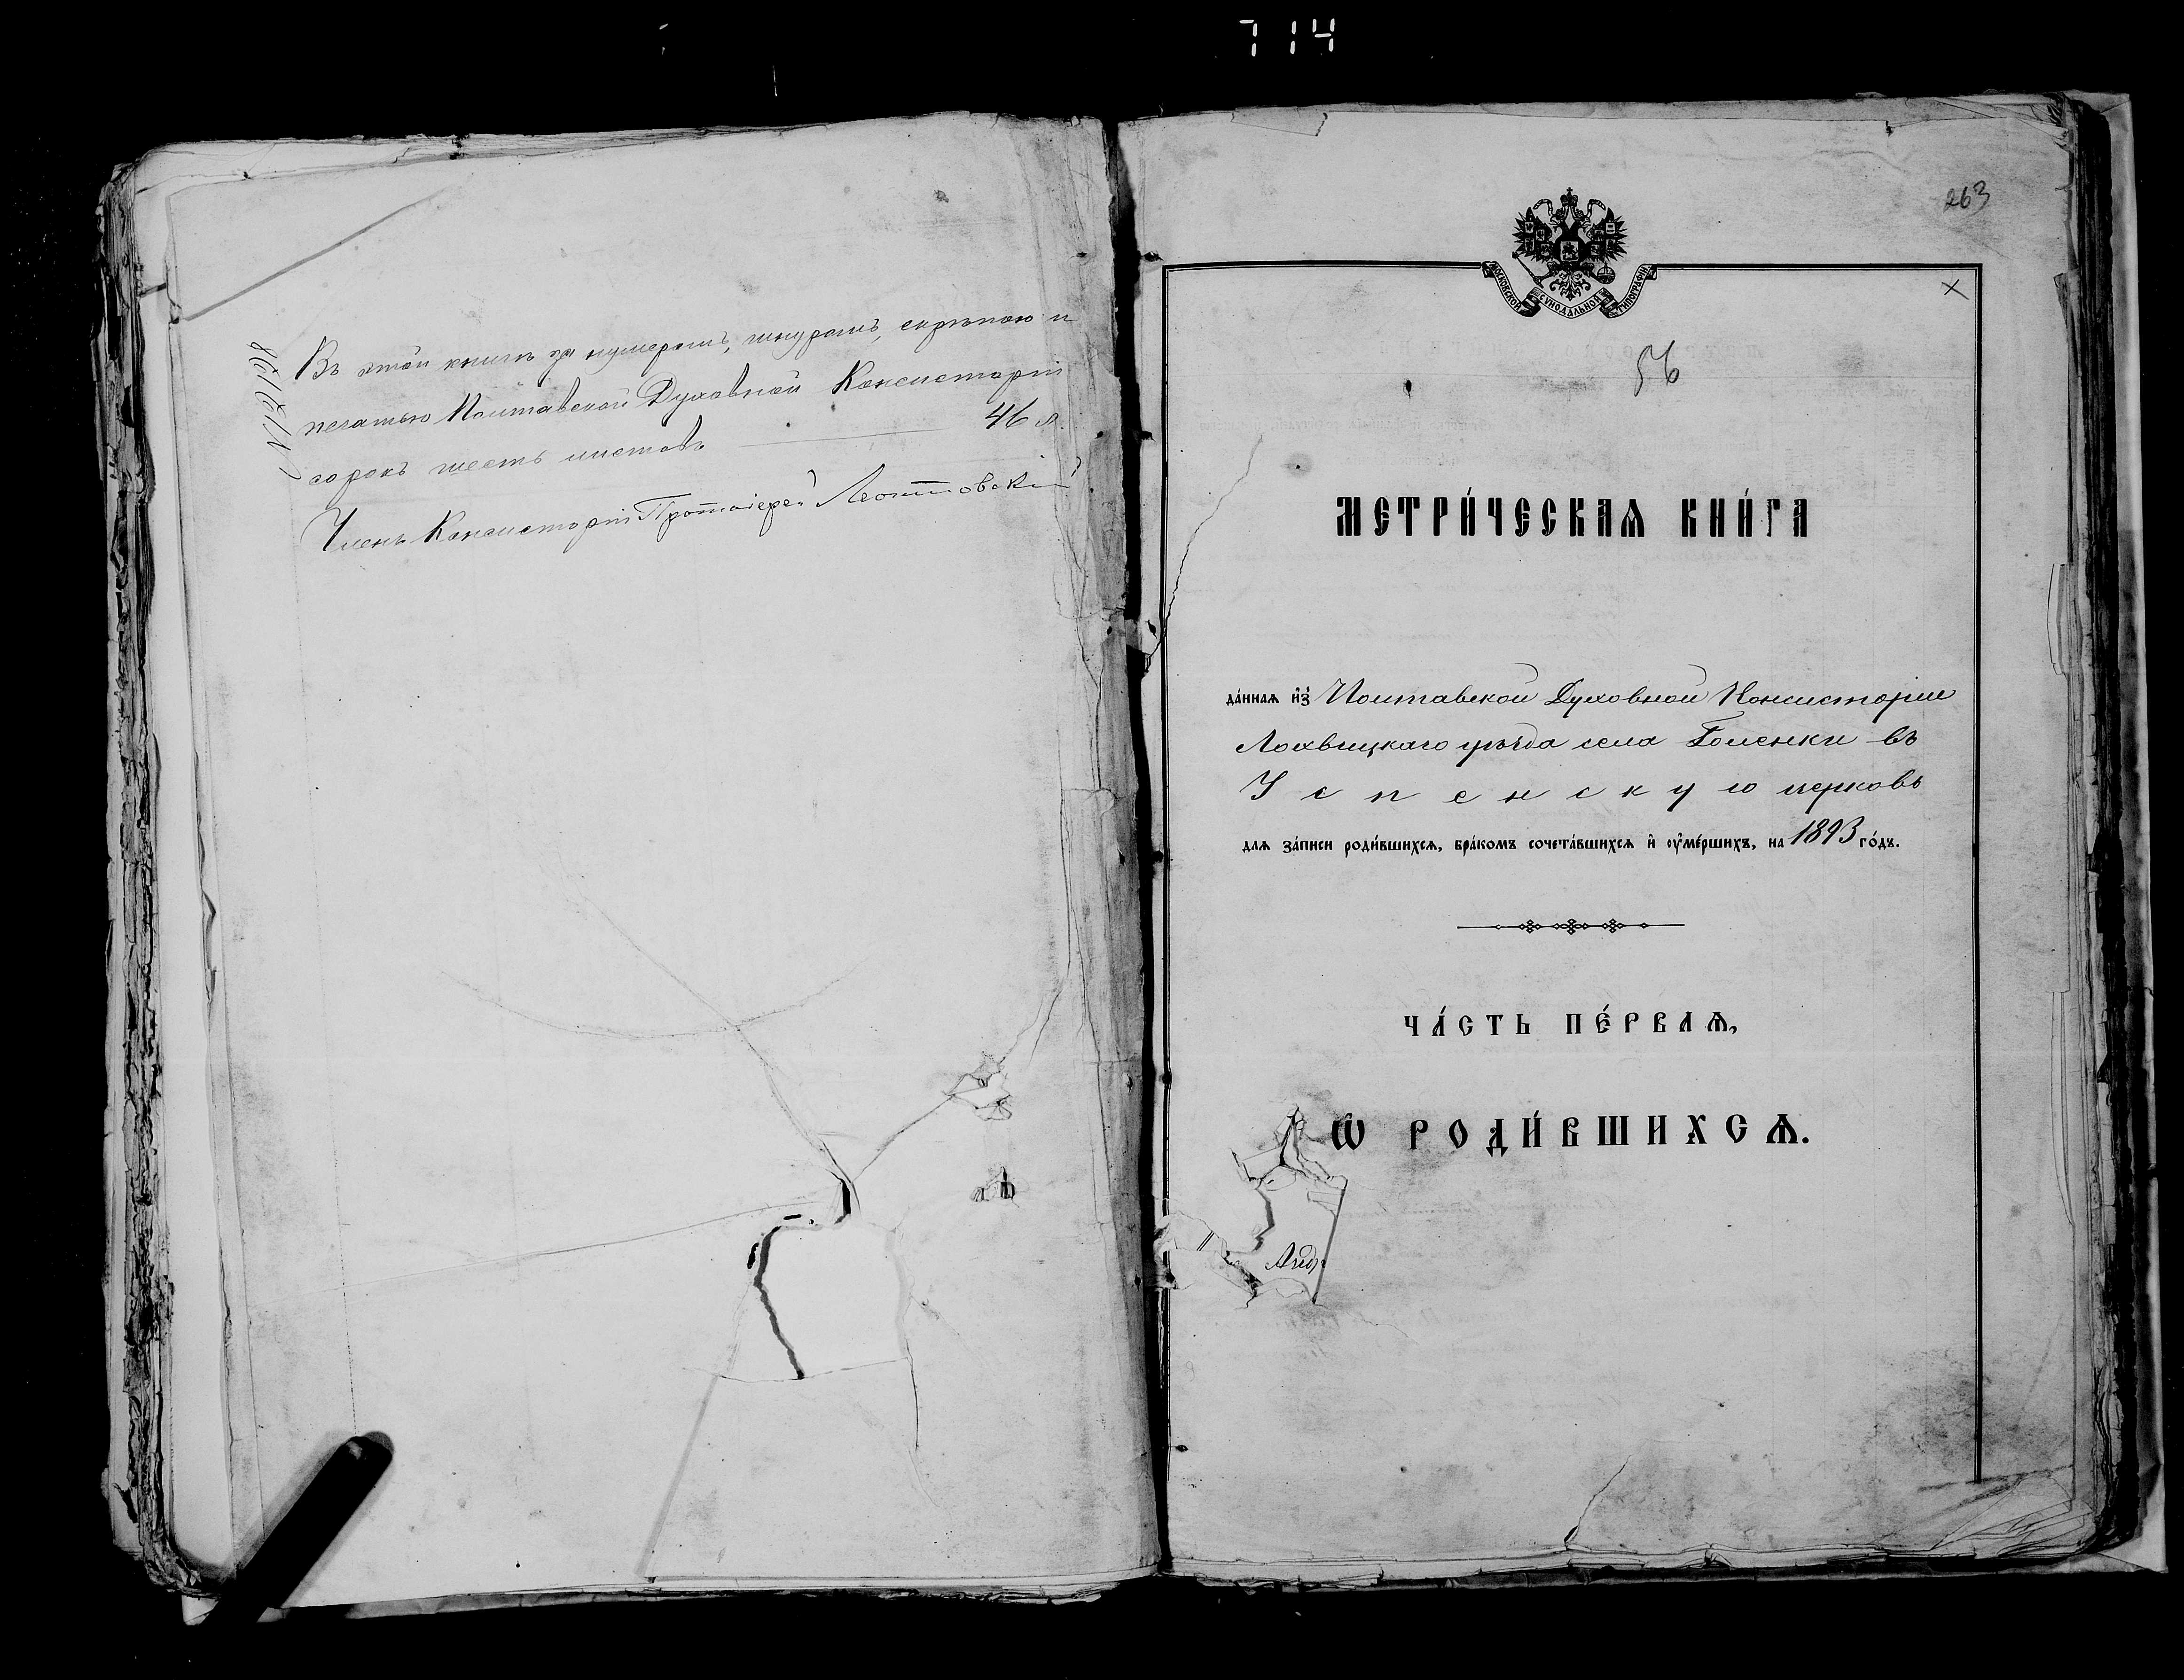 714
Въ этой книгѣ за нумерами, шнуромъ, скрѣпою и
печатью Полтавской Духовной Консисторіи
сорокъ шесть листовъ 46 л.
Членъ Консисторіи Протоіерей Леонтовскій
263
МОСКОВСКОЙ СѴНОДАЛЬНОЙ ТИПОГРАФІИ
56
МЕТРИ́ЧЕСКАѦ КНИ́ГА
да́ннаѧ и҆з̾ Полтавской Духовной Консисторіи
Лохвицкаго уѣзда села Голенки въ
Успенскую церковь
для за́писи роди́вшихсѧ, бра́комъ сочета́вшихсѧ и҆ ᲂу҆ме́ршихъ, на 1893 го́дъ.
ЧА́СТЬ ПЕ́РВАѦ,
Ѡ҆ РОДИ́ВШИХСѦ.
Андр